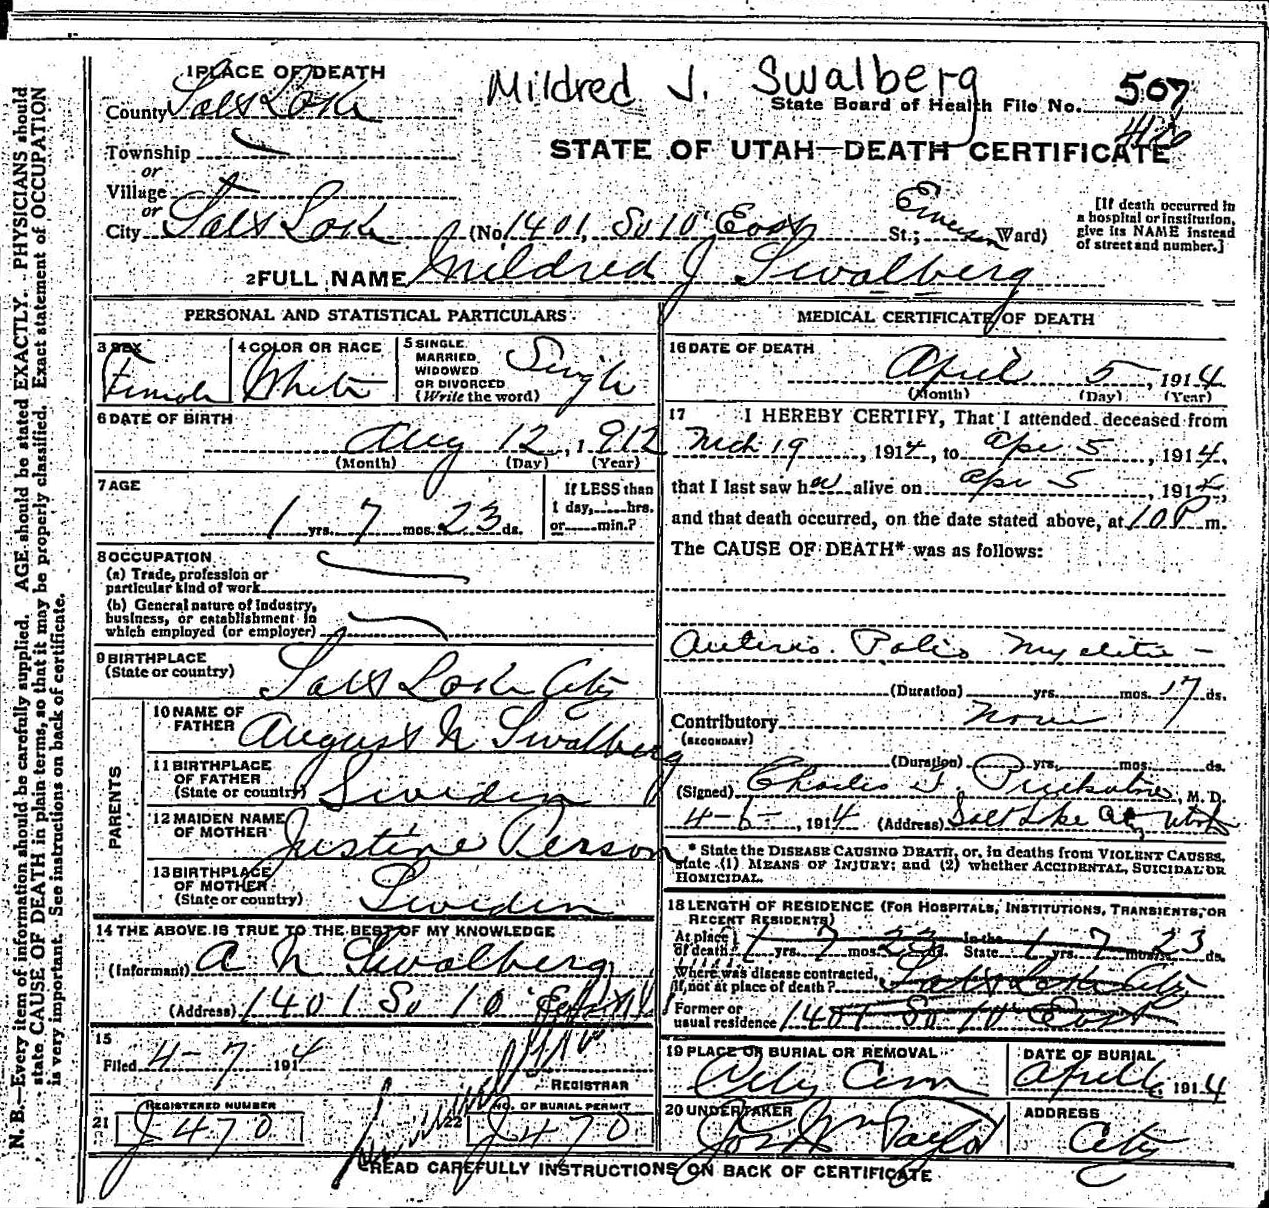 1 PLACE OF DEATH
Mildred J. Swalberg
County Salt Lake
State Board of Health File No. 507
Township
or
Village
or
STATE OF UTAH—DEATH CERTIFICATE
City Salt Lake (No. 1401, So 10 East St.; Emerson Ward)
[If death occurred in
a hospital or institution,
give its NAME instead
of street and number.]
2 FULL NAME Mildred J Swalberg
PERSONAL AND STATISTICAL PARTICULARS.
3 SEX
Female
4 COLOR OR RACE
White
5 SINGLE
MARRIED
WIDOWED
OR DIVORCED
(Write the word)
Single
6 DATE OF BIRTH
Aug 12, 1912
(Month) (Day) (Year)
7 AGE
1 yrs. 7 mos. 23 ds.
If LESS than
1 day, hrs.
or min.?
8 OCCUPATION
(a) Trade, profession or
particular kind of work
(b) General nature of industry,
business, or establishment in
which employed (or employer)
9 BIRTHPLACE
(State or country) Salt Lake City
PARENTS
10 NAME OF
FATHER August N Swalberg
11 BIRTHPLACE
OF FATHER
(State or country) Sweden
12 MAIDEN NAME
OF MOTHER Justine Person
13 BIRTHPLACE
OF MOTHER
(State or country) Sweden
14 THE ABOVE IS TRUE TO THE BEST OF MY KNOWLEDGE
(Informant) A N Swalberg
(Address) 1401 So 10 East
15
Filed 4-7 1914
REGISTRAR
21 REGISTERED NUMBER
J 470
22 NO. OF BURIAL PERMIT
J 470
MEDICAL CERTIFICATE OF DEATH
16 DATE OF DEATH
April 5, 1914
(Month) (Day) (Year)
17 I HEREBY CERTIFY, That I attended deceased from
Mch 19, 1914, to Apr 5, 1914,
that I last saw her alive on Apr 5, 1914,
and that death occurred, on the date stated above, at 10 P m.
The CAUSE OF DEATH* was as follows:
Polio Myelitis -
(Duration) yrs. mos. 17 ds.
Contributory None
(SECONDARY)
(Duration) yrs. mos. ds.
(Signed) Charles, M. D.
4-6-, 1914 (Address) Salt Lake City Utah
* State the DISEASE CAUSING DEATH, or, in deaths from VIOLENT CAUSES,
state (1) MEANS OF INJURY; and (2) whether ACCIDENTAL, SUICIDAL OR
HOMICIDAL.
18 LENGTH OF RESIDENCE (FOR HOSPITALS, INSTITUTIONS, TRANSIENTS, OR
RECENT RESIDENTS)
At place
of death 1 yrs. 7 mos. 23 ds. In the
State 1 yrs. 7 mos. 23 ds.
Where was disease contracted,
if not at place of death? Salt Lake City
Former or
usual residence 1401 So 10 East
19 PLACE OF BURIAL OR REMOVAL
City Cem
DATE OF BURIAL
April 6, 1914
20 UNDERTAKER
Jos Wm Taylor
ADDRESS
City
READ CAREFULLY INSTRUCTIONS ON BACK OF CERTIFICATE
N. B.—Every item of information should be carefully supplied. AGE should be stated EXACTLY. PHYSICIANS should
state CAUSE OF DEATH in plain terms, so that it may be properly classified. Exact statement of OCCUPATION
is very important. See instructions on back of certificate.